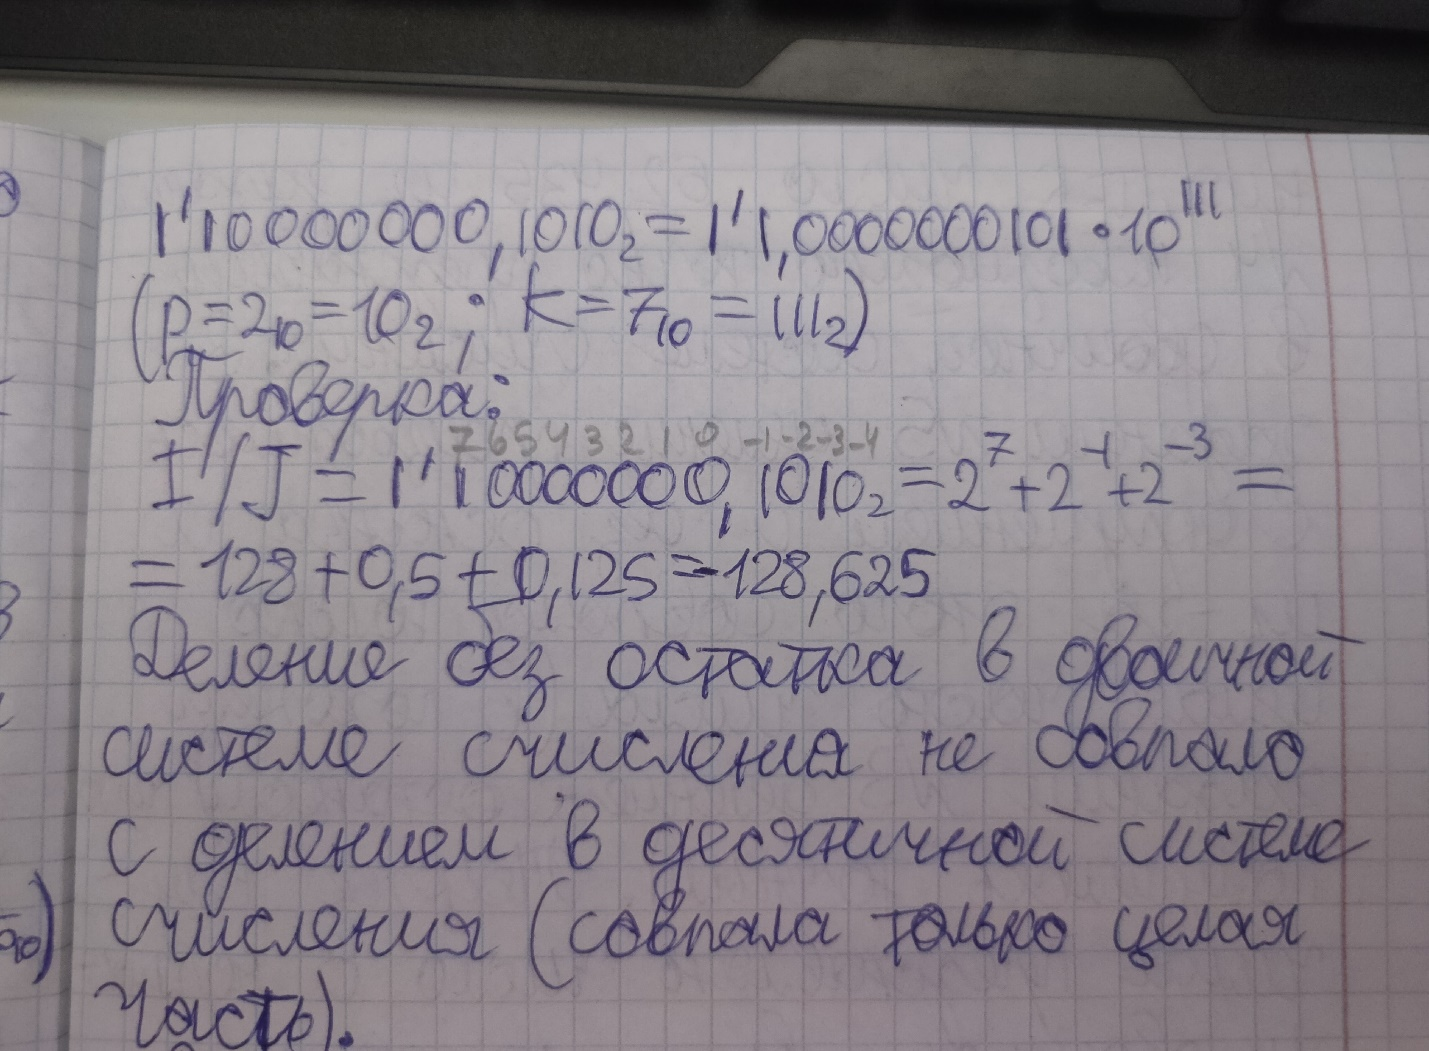 1'10000000,1010₂=1'1,0000000101•10¹¹¹
(p=2₁₀=10₂; k=7₁₀=111₂)
Проверка:
7 6 5 4 3 2 1 0 -1 -2 -3 -4
I/J=1'10000000,1010₂=2⁷+2⁻¹+2⁻³=
=128+0,5+0,125=-128,625
Деление без остатка в двоичной
системе счисления не совпало
с делением в десятичной системе
счисления (совпала только целая
часть).